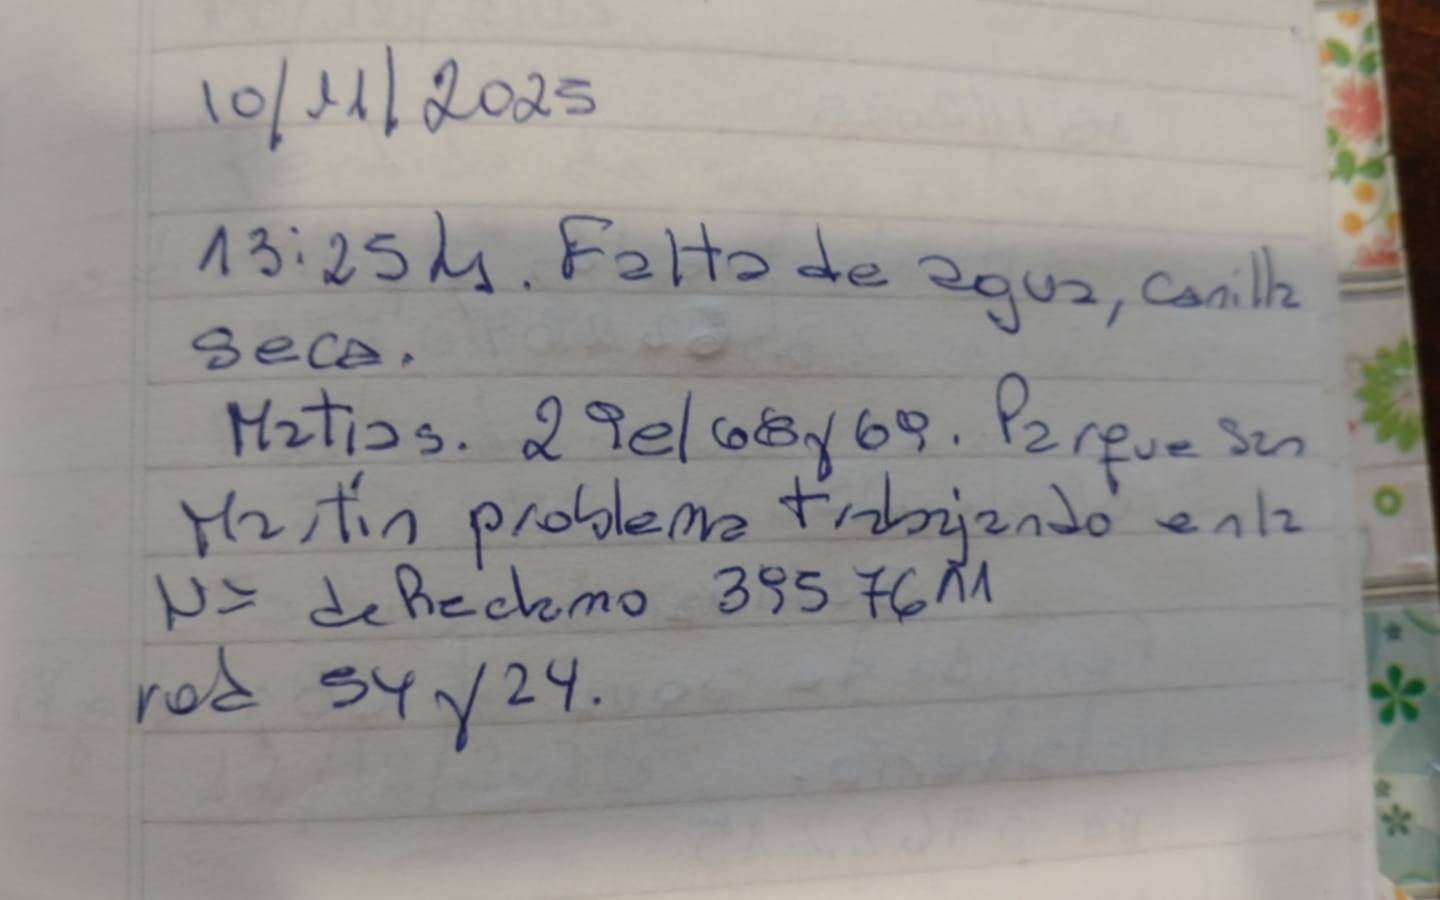 10/11/2025
13:25 hs. Falta de agua, canilla
seca.
Matias. 29 e/ 68 y 69. Parque San
Martín problema trabajando en la
Nº de Reclamo 3957611
red 54 y 24.